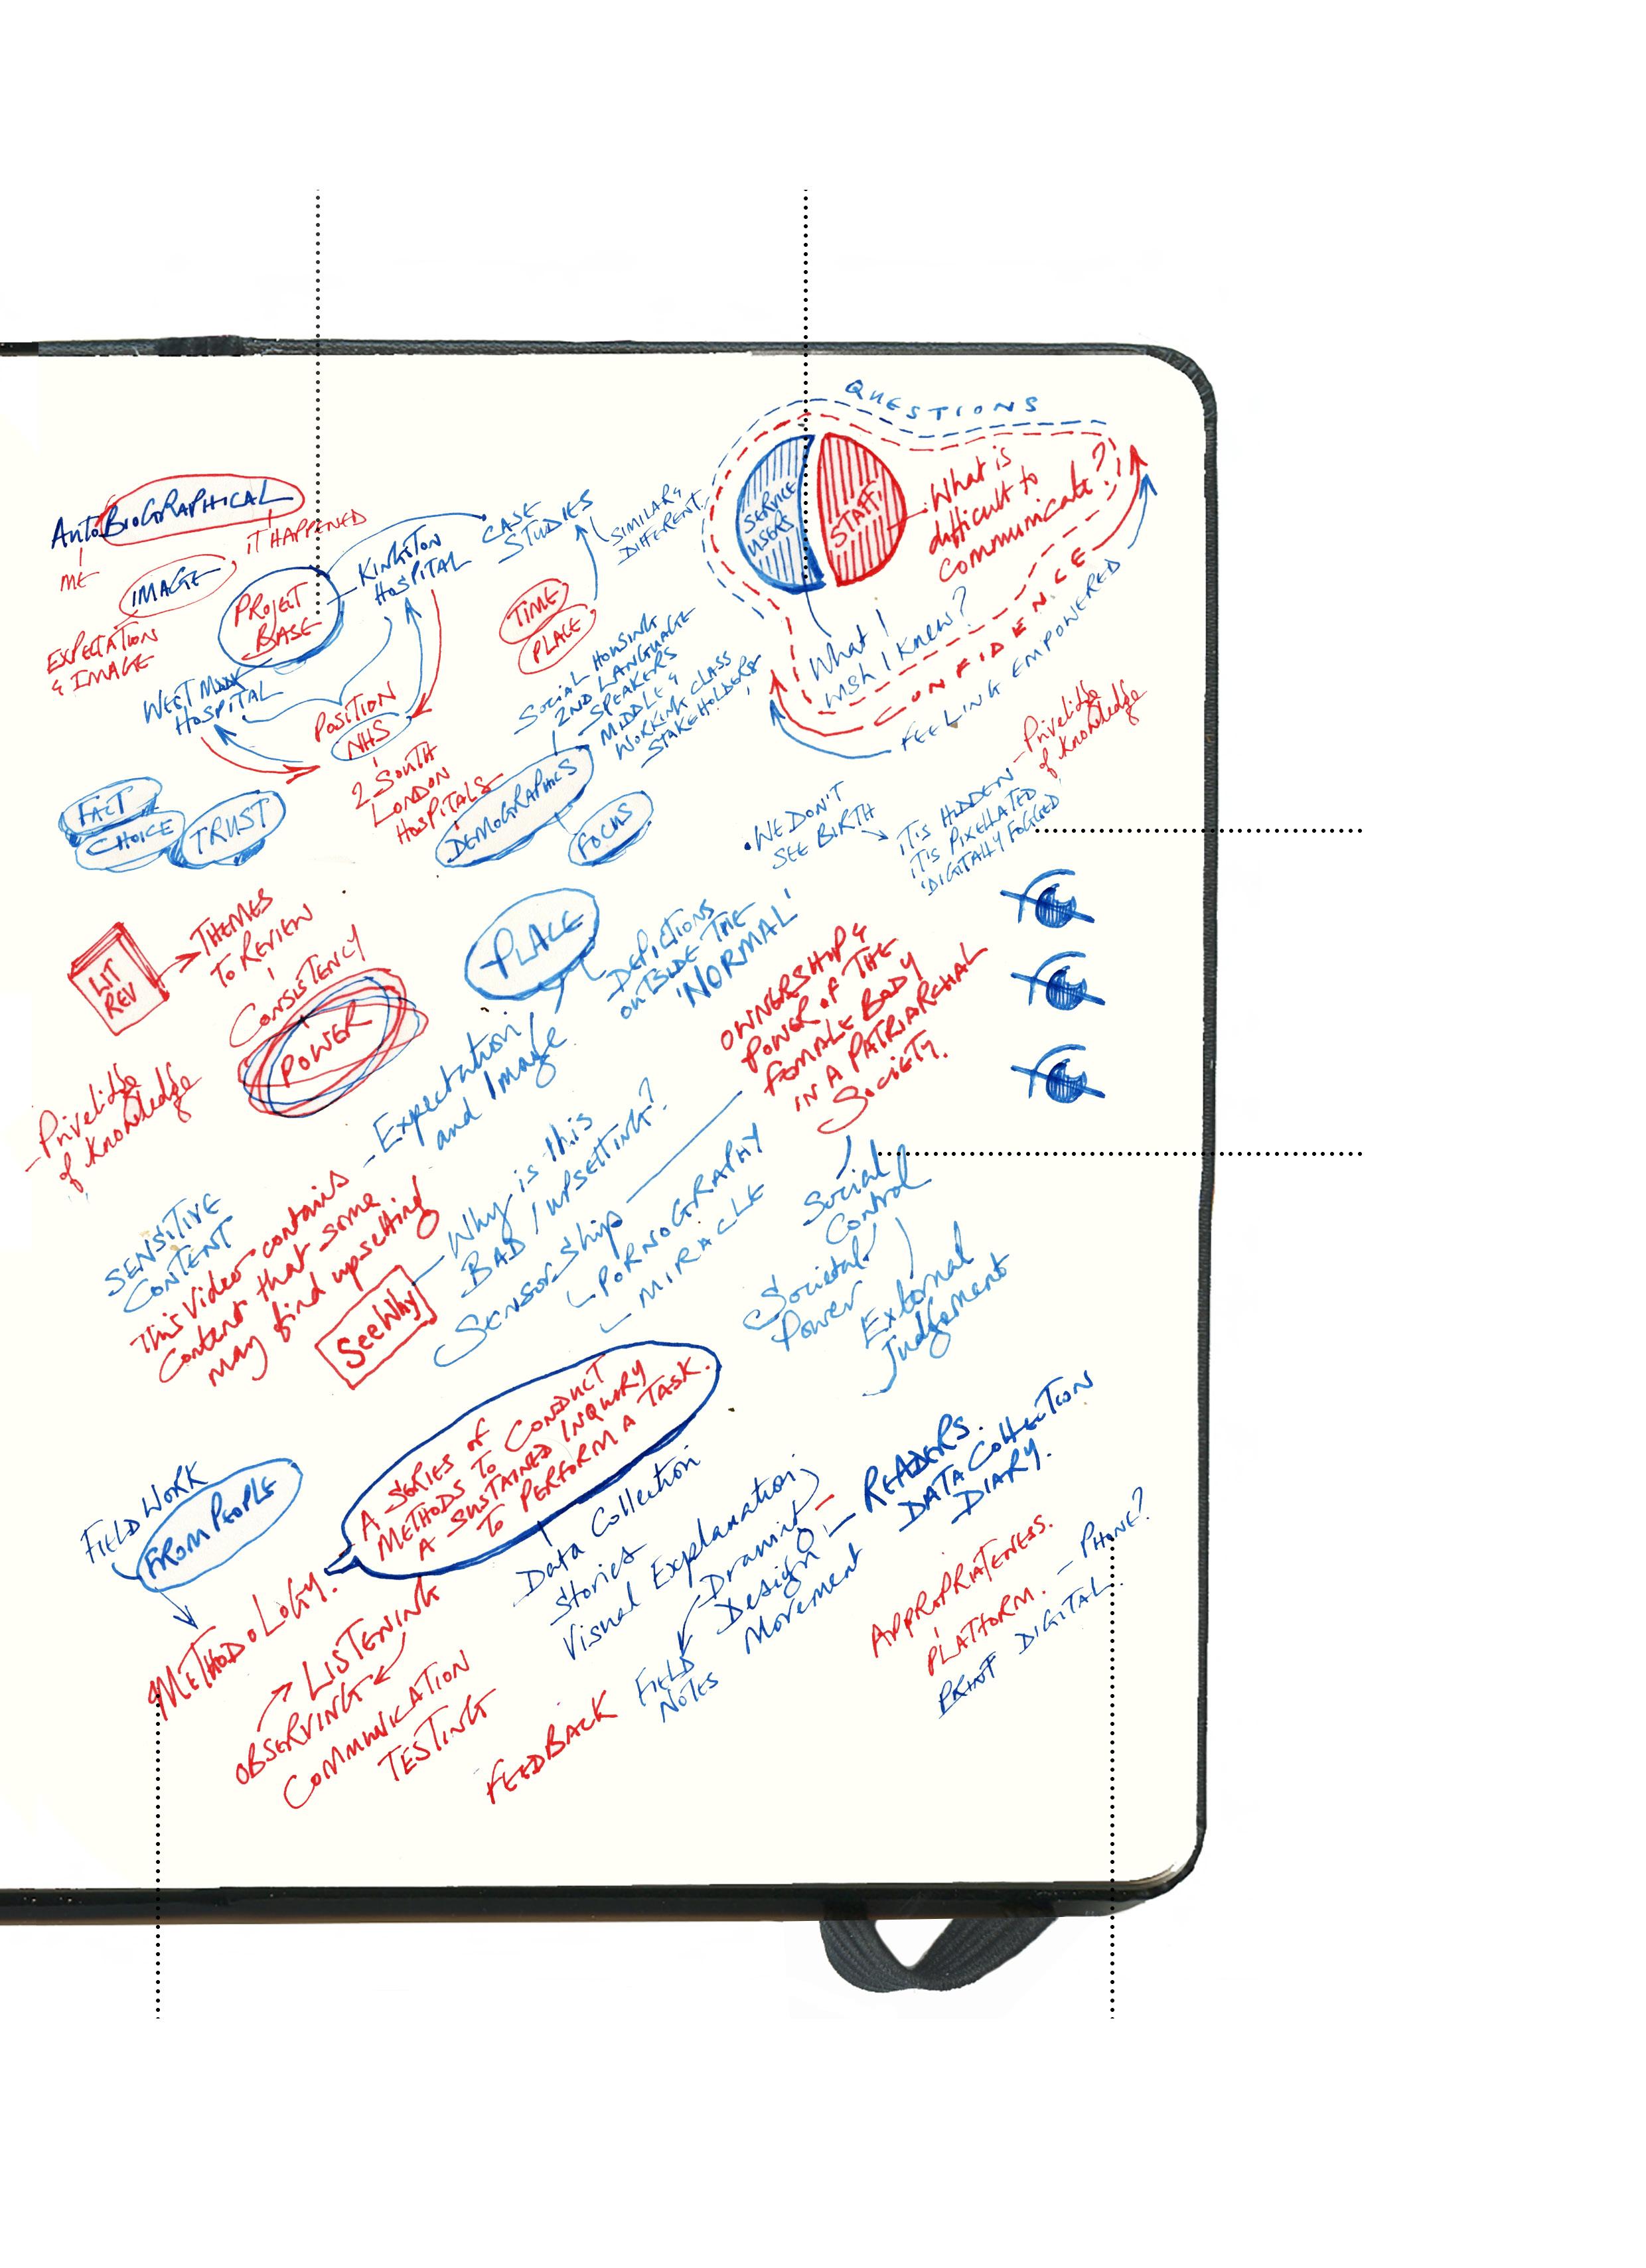 QUESTIONS
SERVICE
USERS
STAFF
What is
difficult to
communicate?
What I
wish I knew?
CONFIDENCE
FEELING EMPOWERED
AUTOBIOGRAPHICAL
ME
IT HAPPENED
IMAGE
EXPECTATION
& IMAGE
PROJECT
BASE
KINGSTON
HOSPITAL
CASE
STUDIES
SIMILAR &
DIFFERENT.
TIME
PLACE
WEST MIDX
HOSPITAL
POSITION
NHS
2 SOUTH
LONDON
HOSPITALS
SOCIAL HOUSING
2ND LANGUAGE
SPEAKERS
MIDDLE &
WORKING CLASS
STAKEHOLDERS
DEMOGRAPHICS
FOCUS
FACT
CHOICE
TRUST
. WE DON'T
SEE BIRTH
IT IS HIDDEN
IT IS PIXELLATED
'DIGITALLY FOGGED'
- Privelidge
of knowledge
LIT
REV
THEMES
TO REVIEW
CONSISTENCY
POWER
- Privelidge
of knowledge
PLACE
DEPICTIONS
OUTSIDE THE
'NORMAL'
- Expectation
and Image
OWNERSHIP &
POWER OF THE
FEMALE BODY
IN A PATRIARCHAL
SOCIETY.
Social
Control
Societal
Power
External
Judgement
SENSITIVE
CONTENT
This video contains
content that some
may find upsetting
SeeWhy
- Why is this
BAD / UPSETTING?
Sensorship
PORNOGRAPHY
MIRACLE
A SERIES OF
METHODS TO CONDUCT
A SUSTAINED INQUIRY
TO PERFORM A TASK.
FIELD WORK
FROM PEOPLE
METHODOLOGY.
LISTENING
OBSERVING
COMMUNICATION
TESTING
FEEDBACK
Data Collection
Stories
Visual Explanation
Design
Movement
FIELD
NOTES
READERS.
DATA COLLECTION
DIARY.
APPROPRIATENESS.
PLATFORM. - PHONE?
PRINT DIGITAL.